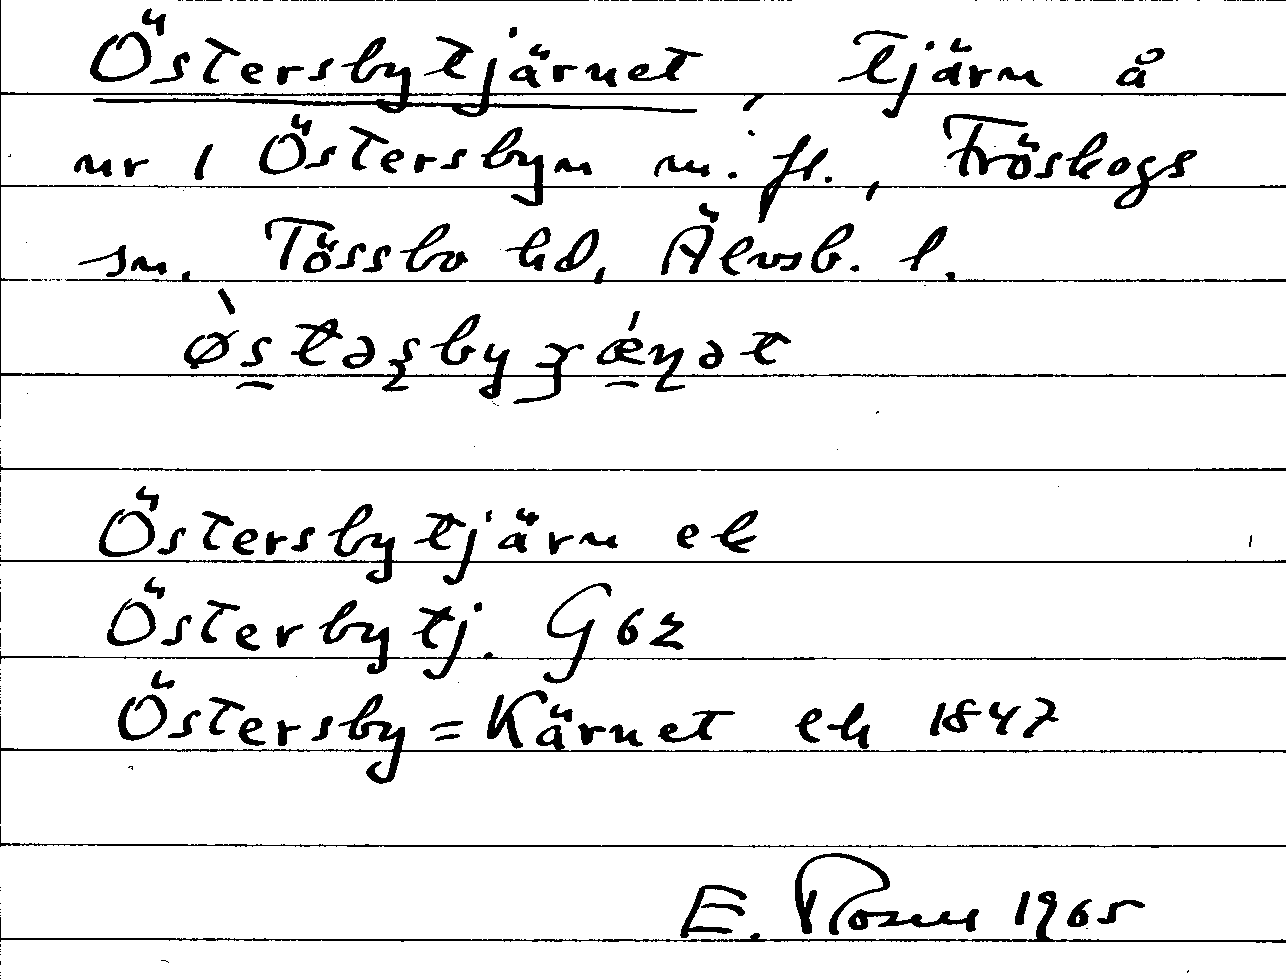 Östersbytjärnet, Tjärn å
nr 1 Östersbyn m. fl., Fröskogs
sn. Tössbo hd, Älvsb. l.
Östersbytjärn ek
Österbytj. G62
Östersby=Kärnet eh 1847
E. Rosell 1965